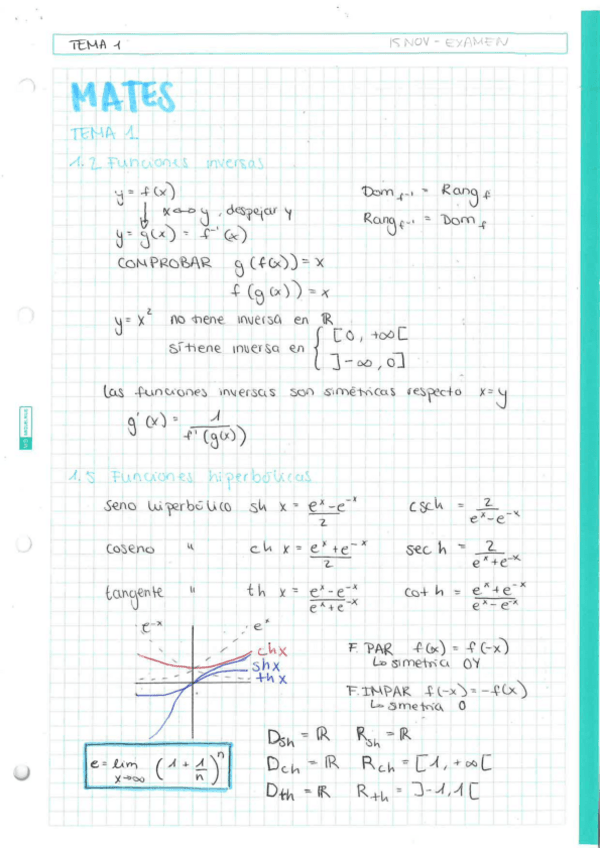 TEMA 1 15 NOV - EXAMEN
MATES
TEMA 1.
1.2 Funciones inversas
y = f(x) Dom f⁻¹ = Rang f
x ↔ y, despejar y
y = g(x) = f⁻¹(x) Rang f⁻¹ = Dom f
COMPROBAR g(f(x)) = x
f(g(x)) = x
y = x² no tiene inversa en ℝ
sí tiene inversa en { [0, +∞[
]-∞, 0]
las funciones inversas son simétricas respecto x = y
g'(x) = 1 / f'(g(x))
1.5 Funciones hiperbólicas
seno hiperbólico sh x = (eˣ - e⁻ˣ) / 2 csch = 2 / (eˣ - e⁻ˣ)
coseno " ch x = (eˣ + e⁻ˣ) / 2 sec h = 2 / (eˣ + e⁻ˣ)
tangente " th x = (eˣ - e⁻ˣ) / (eˣ + e⁻ˣ) cot h = (eˣ + e⁻ˣ) / (eˣ - e⁻ˣ)
e⁻ˣ eˣ
chx
shx
thx
F. PAR f(x) = f(-x)
↳ simetria OY
F. IMPAR f(-x) = -f(x)
↳ simetria O
e = lim x→∞ (1 + 1/n)ⁿ
D sh = ℝ R sh = ℝ
D ch = ℝ R ch = [1, +∞[
D th = ℝ R th = ]-1, 1[